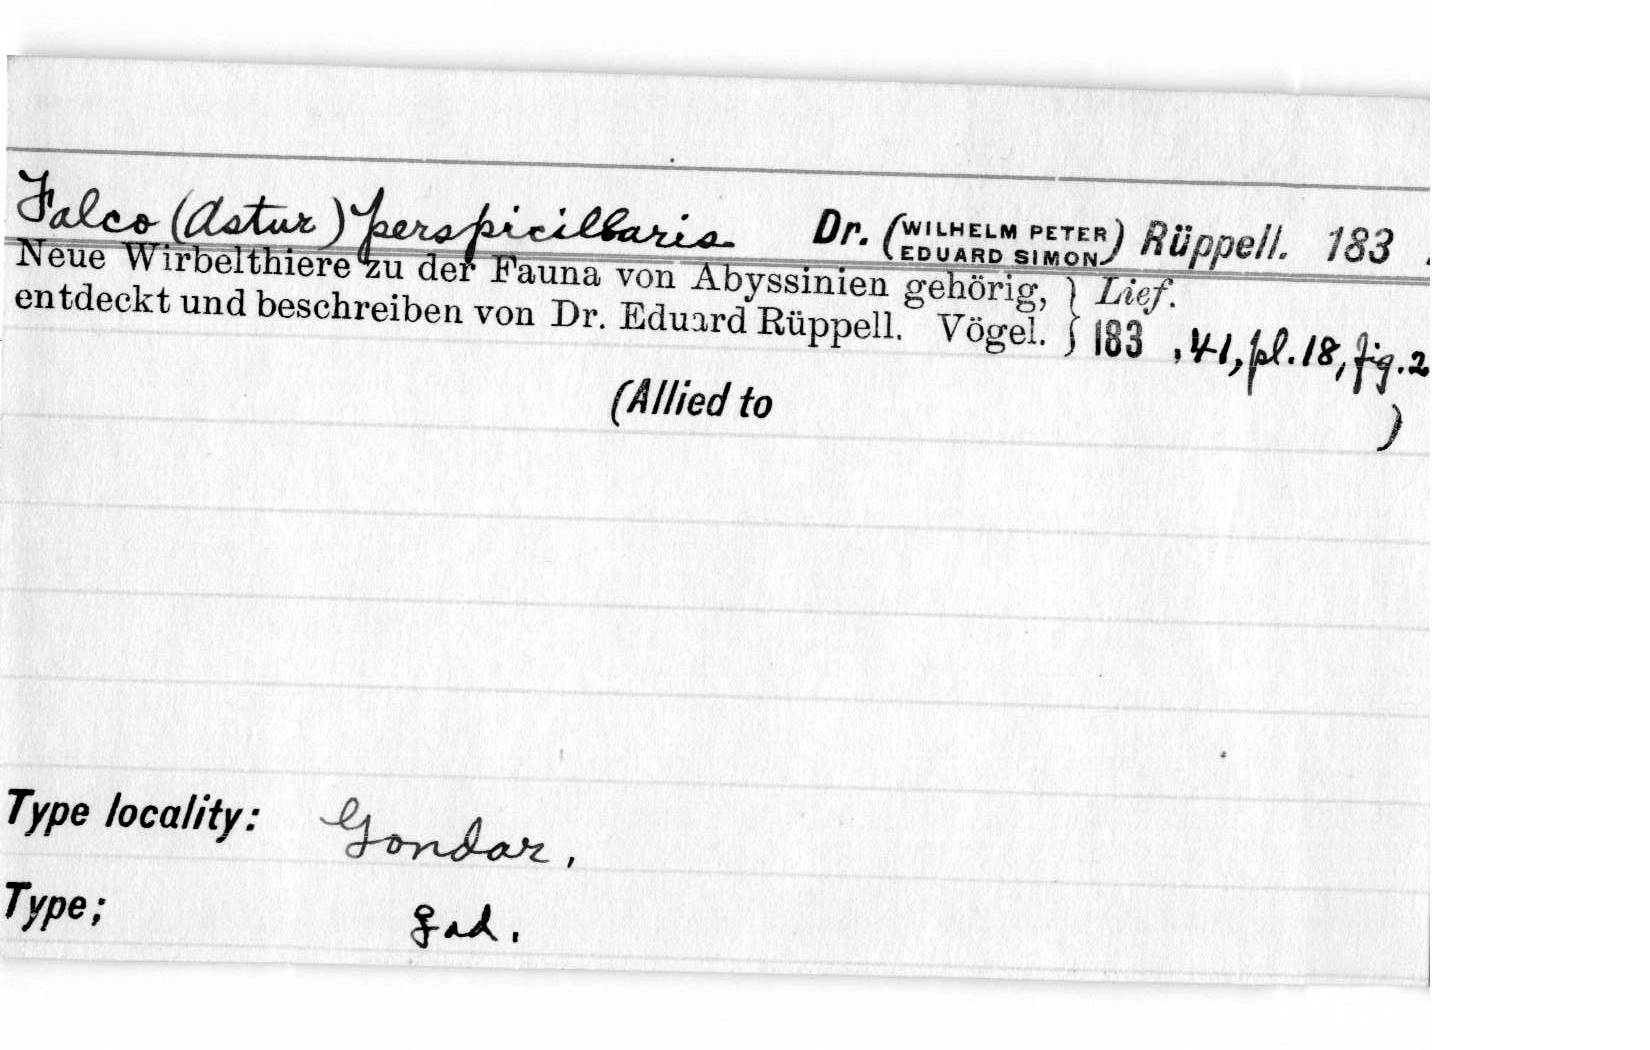 Falco (Astur) perspicillaris Dr. (WILHELM PETER EDUARD SIMON) Rüppell. 183 .
Neue Wirbelthiere zu der Fauna von Abyssinien gehörig, } Lief.
entdeckt und beschreiben von Dr. Eduard Rüppell. Vögel. } 183 , 41, pl. 18, fig. 2
(Allied to )
Type locality: Gondar.
Type; ad.